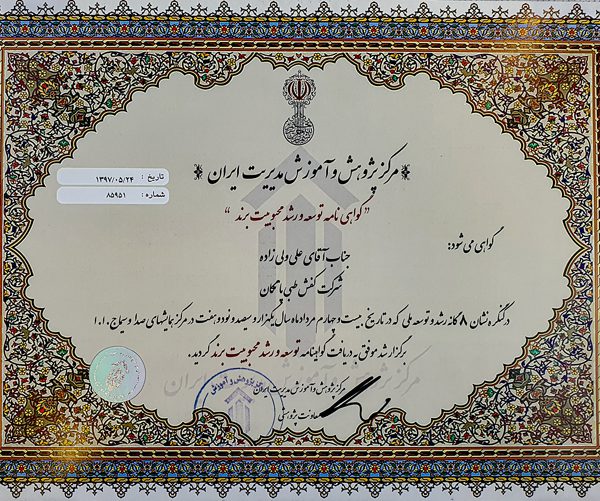 مرکز پژوهش و آموزش مدیریت ایران
تاریخ : ۱۳۹۷/۰۵/۲۴
شماره : ۸۵۹۵۱
“گواهی نامه توسعه و رشد محبوبیت برند”
گواهی می شود:
جناب آقای علی ولی زاده
شرکت کفش طبی پامگان
در کنگره نشان ۸ گانه رشد و توسعه ملی که در تاریخ بیست و چهارم مرداد ماه سال یکهزار و سیصد و نود و هفت در مرکز همایشهای صدا و سیما ج.ا.ا
برگزار شد موفق به دریافت گواهینامه توسعه و رشد محبوبیت برند گردید.
مرکز پژوهش و آموزش مدیریت ایران
معاونت پژوهشی
مرکز پژوهش و آموزش مدیریت ایران